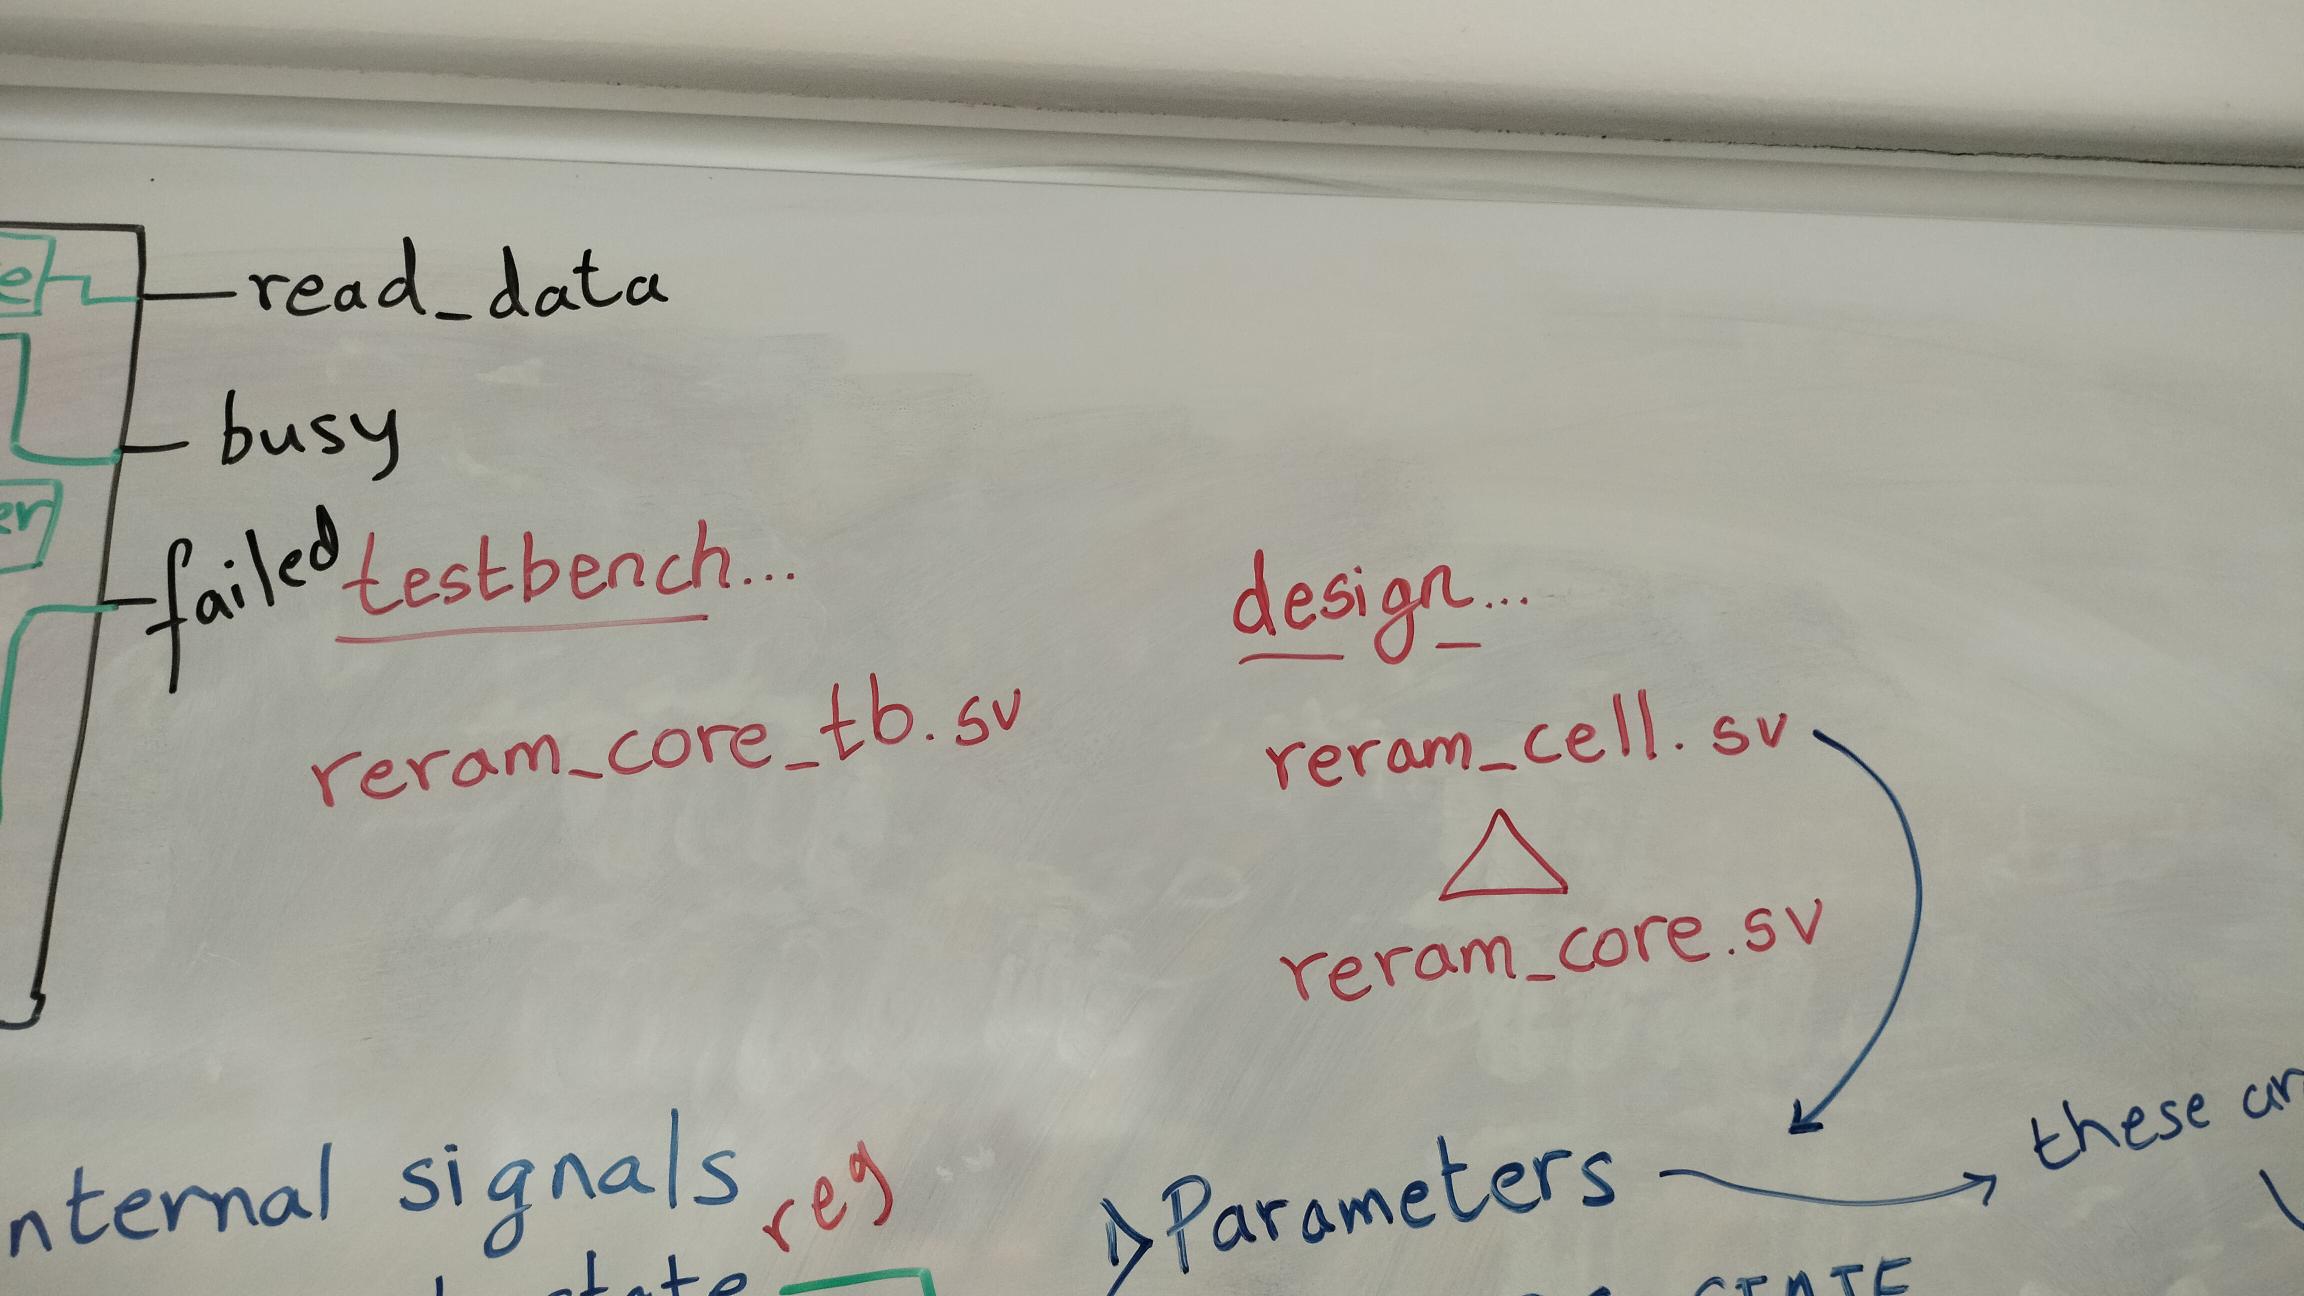 read_data
busy
failed
testbench...
reram_core_tb.sv
design...
reram_cell.sv
reram_core.sv
nternal signals
reg
state
1) Parameters
these
STATE